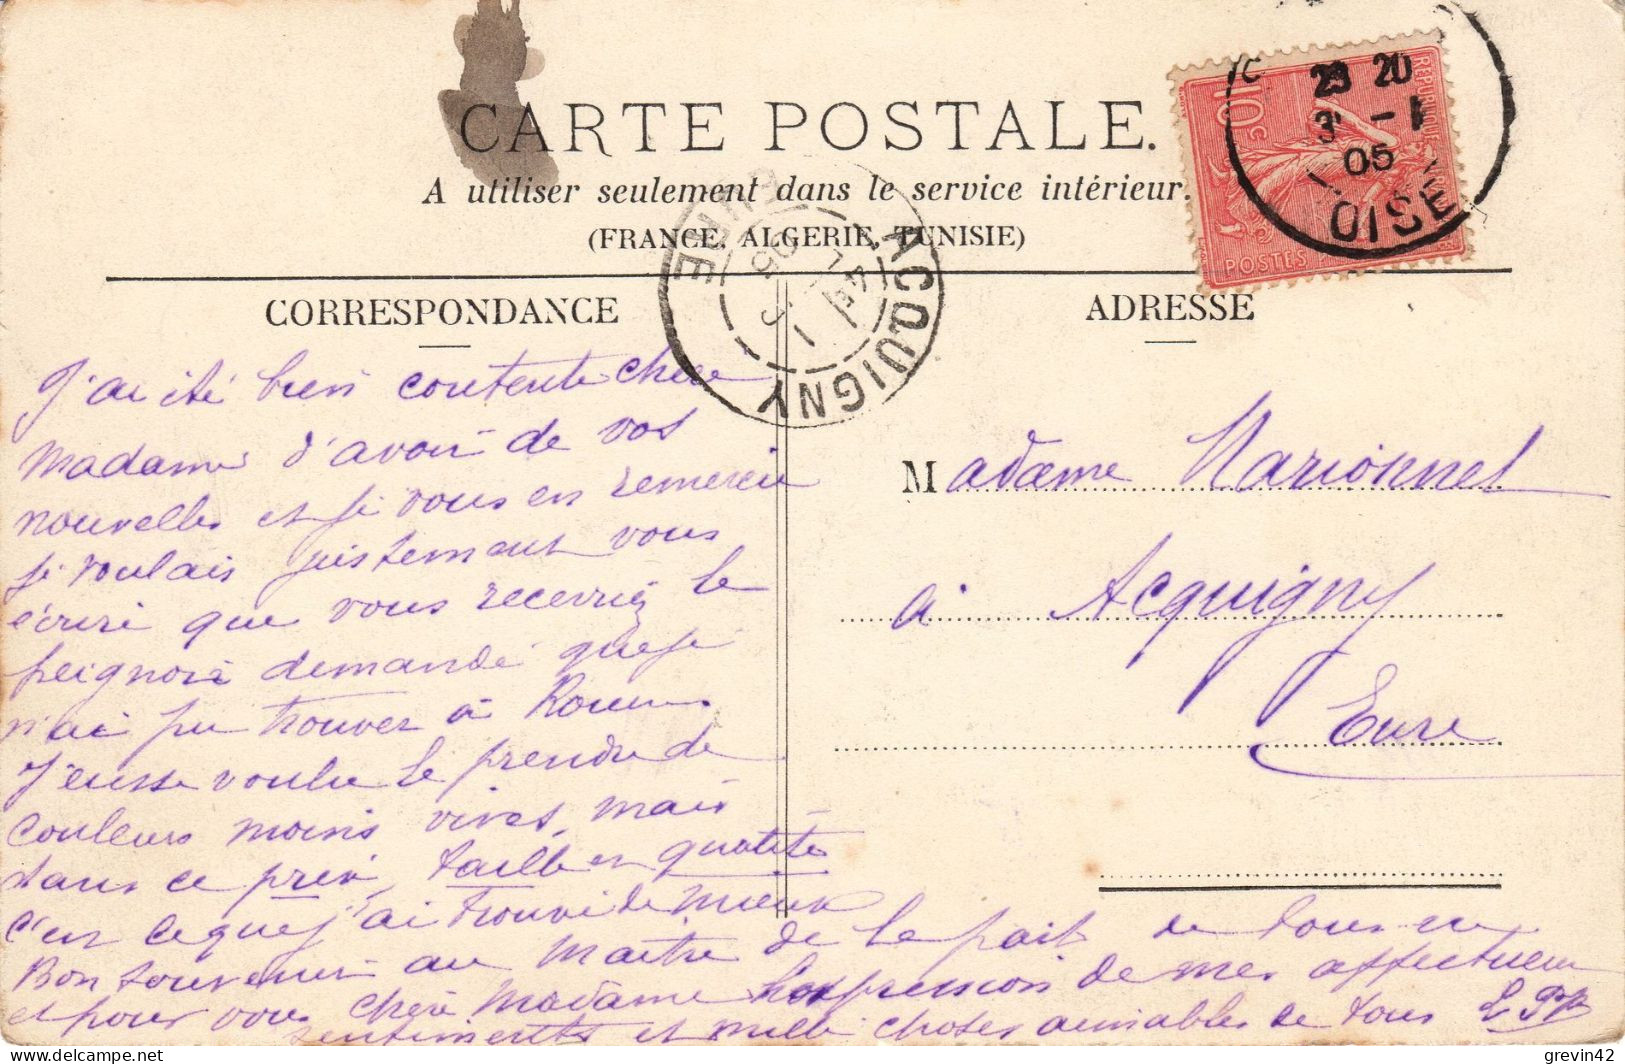 CARTE POSTALE.
A utiliser seulement dans le service intérieur.
(FRANCE, ALGERIE, TUNISIE)
REPUBLIQUE
10c
POSTES
3 -1
05
OISE
ACQUIGNY
EURE
05
CORRESPONDANCE
J'ai été bien contente chère
Madame d'avoir de vos
nouvelles et je vous en remercie
je voulais justement vous
écrire que vous recevriez le
peignoir demandé que je
n'ai pu trouver à Rouen
J'eusse voulu le prendre de
couleurs moins vives, mais
dans ce prix, taille et qualité
c'est ce que j'ai trouvé de mieux
Bon souvenir au Maître de la part de tous
et pour vous chère Madame l'expression de mes affectueux
sentiments et mille choses aimables de tous
ADRESSE
Madame Marionnet
à Acquigny
Eure
www.delcampe.net
grevin42